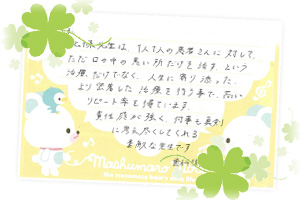 先生は、1人1人の患者さんに対して、
ただ口の中の悪い所だけを治す、という
治療だけでなく、人生に寄り添った、
より密着した治療を行う事で、高い
リピート率を得ています。
責任感が強く、何事も真剣
に考え尽くしてくれる
素敵な先生です
Mashumaro